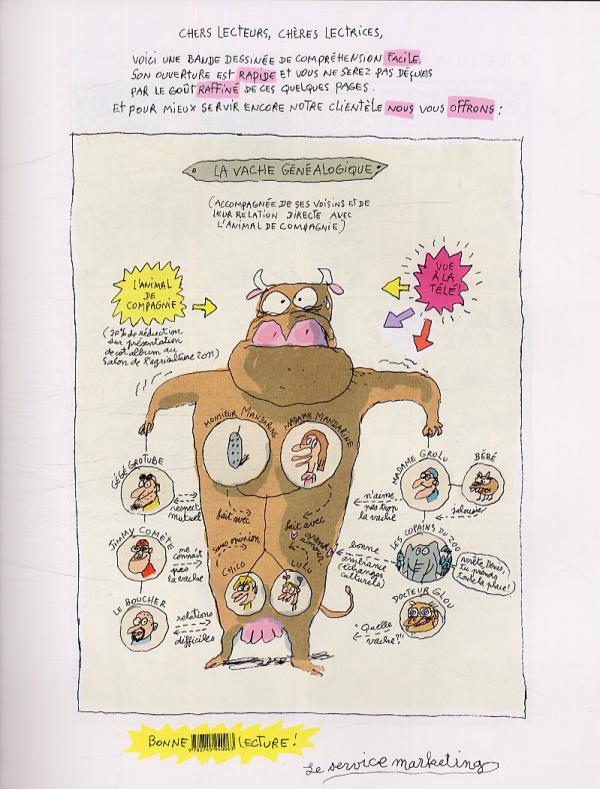 CHERS LECTEURS, CHÈRES LECTRICES,
VOICI UNE BANDE DESSINÉE DE COMPRÉHENSION FACILE.
SON OUVERTURE EST RAPIDE ET VOUS NE SEREZ PAS DÉÇU(E)S
PAR LE GOÛT RAFFINÉ DE CES QUELQUES PAGES.
ET POUR MIEUX SERVIR ENCORE NOTRE CLIENTÈLE NOUS VOUS OFFRONS :
LA VACHE GÉNÉALOGIQUE
(ACCOMPAGNÉE DE SES VOISINS ET DE
LEUR RELATION DIRECTE AVEC
L'ANIMAL DE COMPAGNIE)
L'ANIMAL
DE
COMPAGNIE
(20% de réduction
sur présentation
de cet album au
Salon de l'agriculture 2011)
VUE
À LA
TÉLÉ!
MONSIEUR MANDARINE
MADAME MANDARINE
GÉGÉ GROTUBE
respect
mutuel
JIMMY COMÈTE
ne
connaît
pas
la vache
LE BOUCHER
relations
difficiles
fait avec
sans opinion
fait avec
grand
amour
CHICO
LULU
MADAME GROLU
BÉBÉ
n'aime
pas trop
la vache
jalousie
LES COPAINS DU ZOO
bonne
ambiance
(échanges
culturels)
arrête, Denis,
tu prends
toute la place!
DOCTEUR GLOU
"Quelle
vache?"
BONNE LECTURE!
Le service marketing